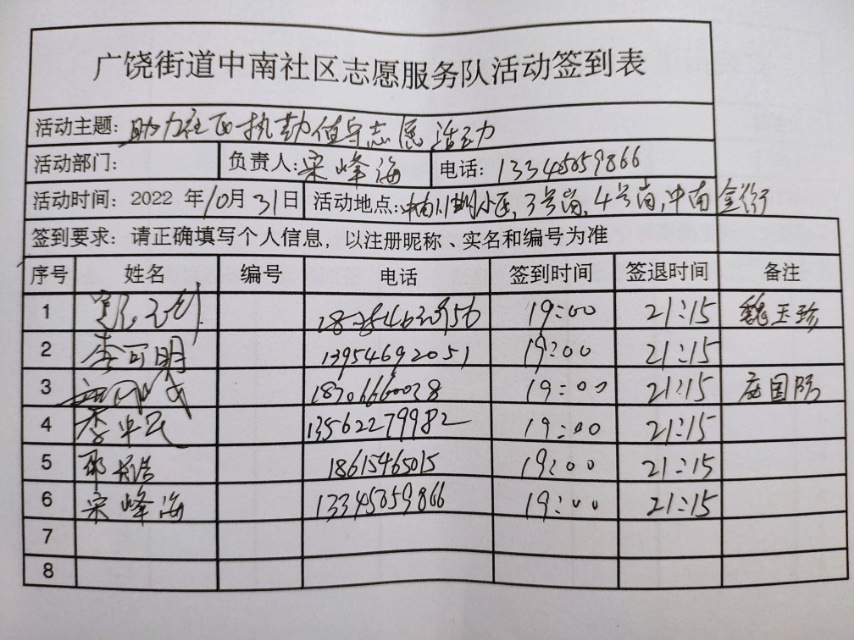 广饶街道中南社区志愿服务队活动签到表
活动主题：助力社区执勤值守志愿活动
活动部门： 负责人：宋峰海 电话：13345059866
活动时间：2022 年10月31日 活动地点：中南小区，3号岗，4号岗，中南金街
签到要求：请正确填写个人信息，以注册昵称、实名和编号为准
序号 姓名 编号 电话 签到时间 签退时间 备注
1 19:00 21:15 魏玉珍
2 李可明 13954692051 19:00 21:15
3 19:00 21:15 庞国防
4 李中民 13562279982 19:00 21:15
5 18615465015 19:00 21:15
6 宋峰海 13345059866 19:00 21:15
7
8